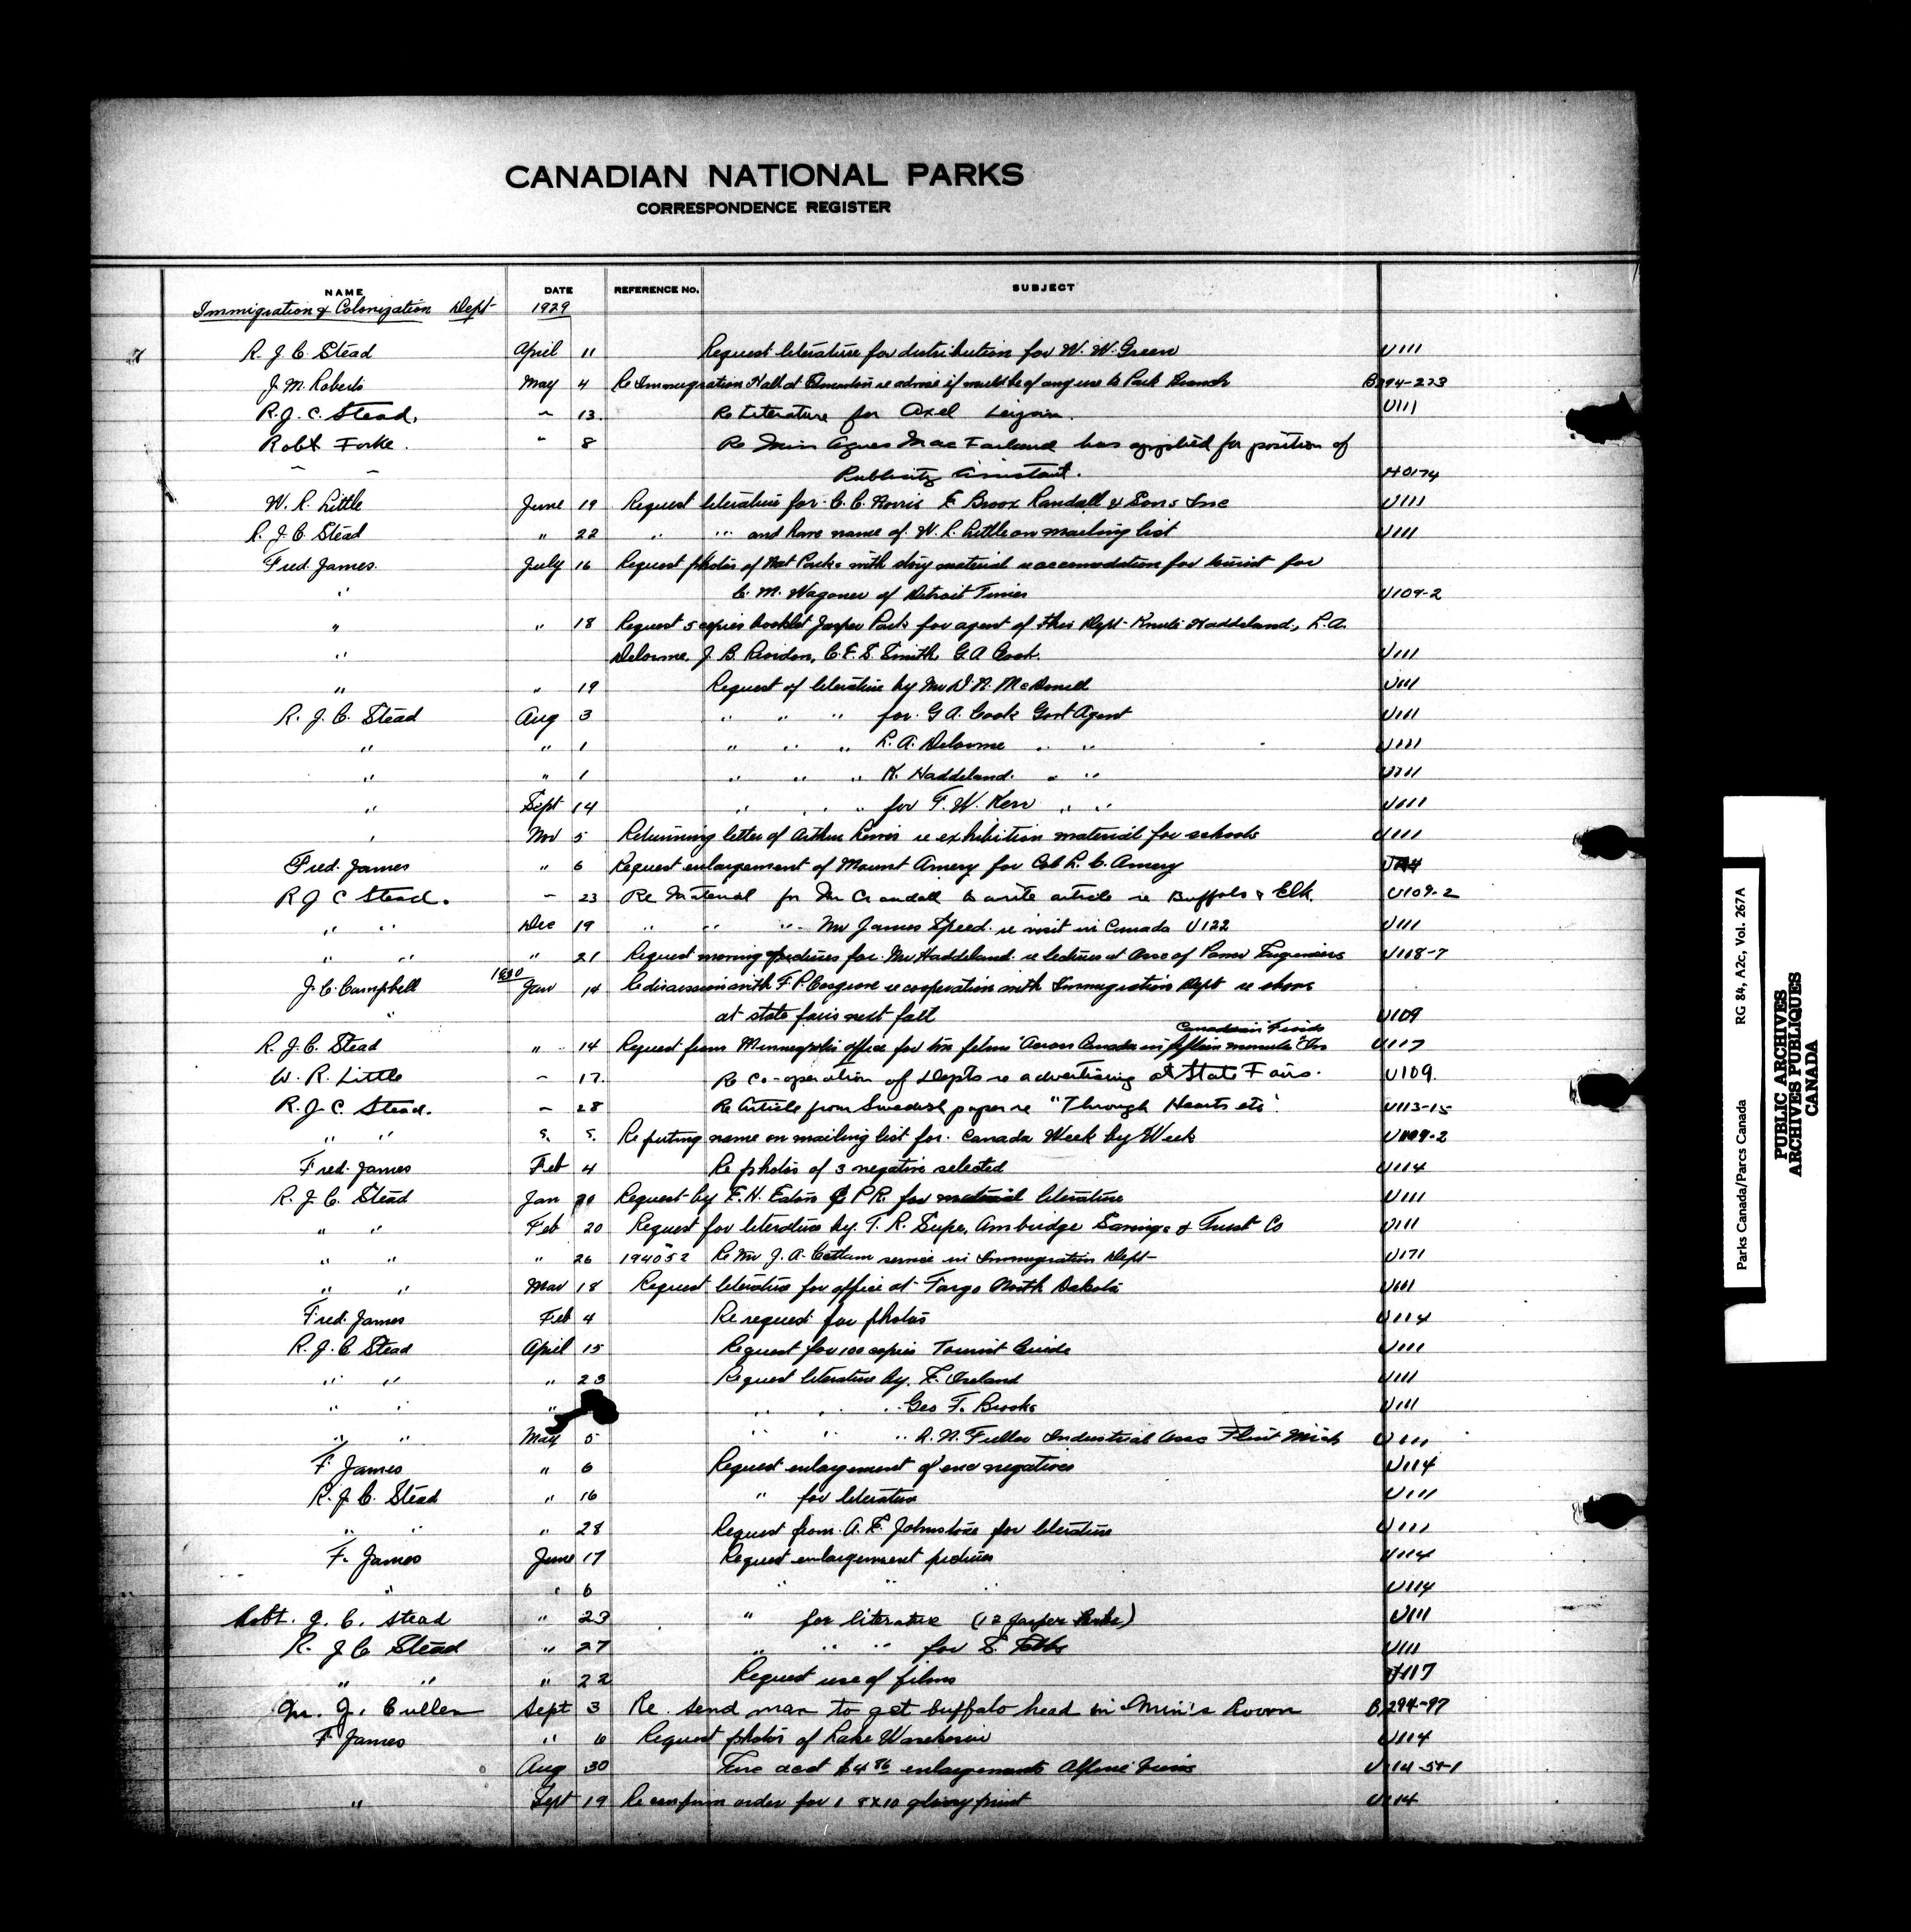 CANADIAN NATIONAL PARKS
CORRESPONDENCE REGISTER
NAME DATE REFERENCE NO. SUBJECT
Immigration & Colonization Dept 1929
R. J. C. Stead April 11 Request literature for distribution for W. W. Green U111
J. M. Roberts May 4 Re Immigration Hall at Edmonton re advise if would be of any use to Park Branch B294-223
R. J. C. Stead. " 13. Re Literature for Axel U111
Robt Forke. " 8 Re Miss Agnes MacFarland has applied for position of
" " Publicity Assistant. H0174
W. R. Little June 19 Request literature for C. C. Norris E Broox Randall & Sons Inc U111
R. J. C. Stead " 22 " " and have name of W. R. Little on mailing list U111
Fred. James. July 16 Request photos of Nat Parks with story material re accomodation for tourist for
" C. M. Wagoner of Detroit Times U109-2
" " 18 Request 5 copies booklet Jasper Park for agent of this Dept - Knute Haddeland, L.A.
" Delorme, J. B. Riordon, C. E. S. Smith, G A Cook. U111
" " 19 Request of literature by Mr D. N. McDonell U111
R. J. C. Stead Aug 3 " " " for G A. Cook Govt Agent U111
" " 1 " " " L. A. Delorme " " U111
" " 1 " " " K. Haddeland. " " U111
" Sept 14 " " " for F. W. Kerr " " U111
" Nov 5 Returning letter of Arthur Lewis re exhibition material for schools U111
Fred. James " 6 Request enlargement of Mount Amery for Col L. C. Amery U114
R J C Stead. " 23 Re Material for Mr Crandall to write article re Buffalo & Elk. U109-2
" " Dec 19 " " " Mr James Speed re visit in Canada U122 U111
" " " 21 Request moving pictures for Mr Haddeland re lectures at Asso of Power Engineers U118-7
J. C. Campbell 1930 Jan 14 Re discussion with F. P. Cosgrove re cooperation with Immigration Dept re show
" at state fairs next fall U109
Canadian Fields
R. J. C. Stead " 14 Request from Minneapolis office for two films "Across Canada in fifteen minutes" U117
W. R. Little " 17. Re Co-operation of Depts re advertising at State Fairs. U109.
R. J. C. Stead. " 28 Re Article from Swedish paper re "Through Hearts etc". U113-15
" " " " Re putting name on mailing list for Canada Week by Week U109-2
Fred. James Feb 4 Re photos of 3 negative selected U114
R. J. C. Stead Jan 20 Request by E. H. Eaton C P R. for material literature U111
" " Feb 20 Request for literature by T. R. Supe, Ambridge Savings & Trust Co U111
" " " 26 194052 Re Mr J. A. service in Immigration Dept U171
" " Mar 18 Request literature for office at Fargo North Dakota U111
Fred. James Feb 4 Re request for photos U114
R. J. C Stead April 15 Request for 100 copies Tourist Guide U111
" " " 23 Request literature by F. Ireland U111
" " " " " " Geo F. Brooks U111
" " May 5 " " " A. N. Fuller Industrial Assc Flint Mich U111
F James " 6 Request enlargement of enc negatives U114
R. J. C. Stead " 16 " for literature U111
" " " 28 Request from A. E. Johnstone for literature U111
F. James June 17 Request enlargement pictures U114
" " 6 " " " U114
Robt. J. C. Stead " 23 " for literature (12 Jasper Parks) U111
R. J C Stead " 27 " " " for S. Tobbs U111
" " " 22 Request use of films U117
M. J. Cullen Sept 3 Re. send man to get buffalo head in Min's Room B294-97
F James " 6 Request photos of Lake Waskesiu U114
Aug 30 acct $4 86 enlargements Alpine views U114-5+1
" Sept 19 Re confirm order for 1 8x10 glossy print U114
Parks Canada/Parcs Canada RG 84, A2c, Vol. 267A
PUBLIC ARCHIVES
ARCHIVES PUBLIQUES
CANADA